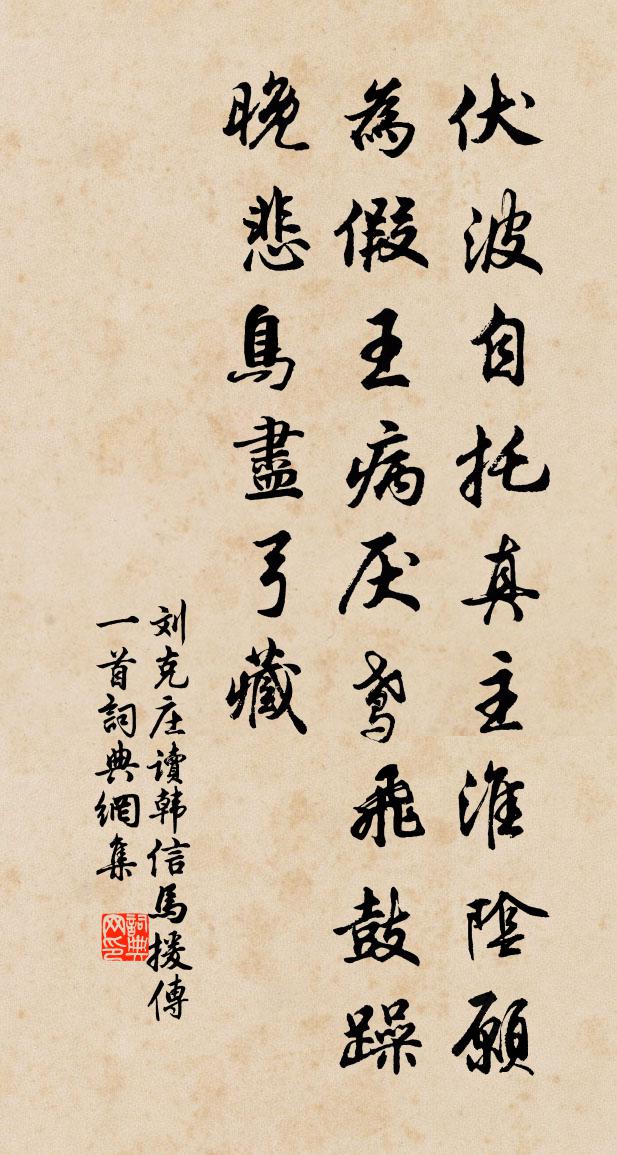 伏波自托真主淮陰願
為假王病厌鸢飛鼓躁
晚悲鳥盡弓藏
刘克庄讀韩信馬援傳
一首詞典網集
詞典网印